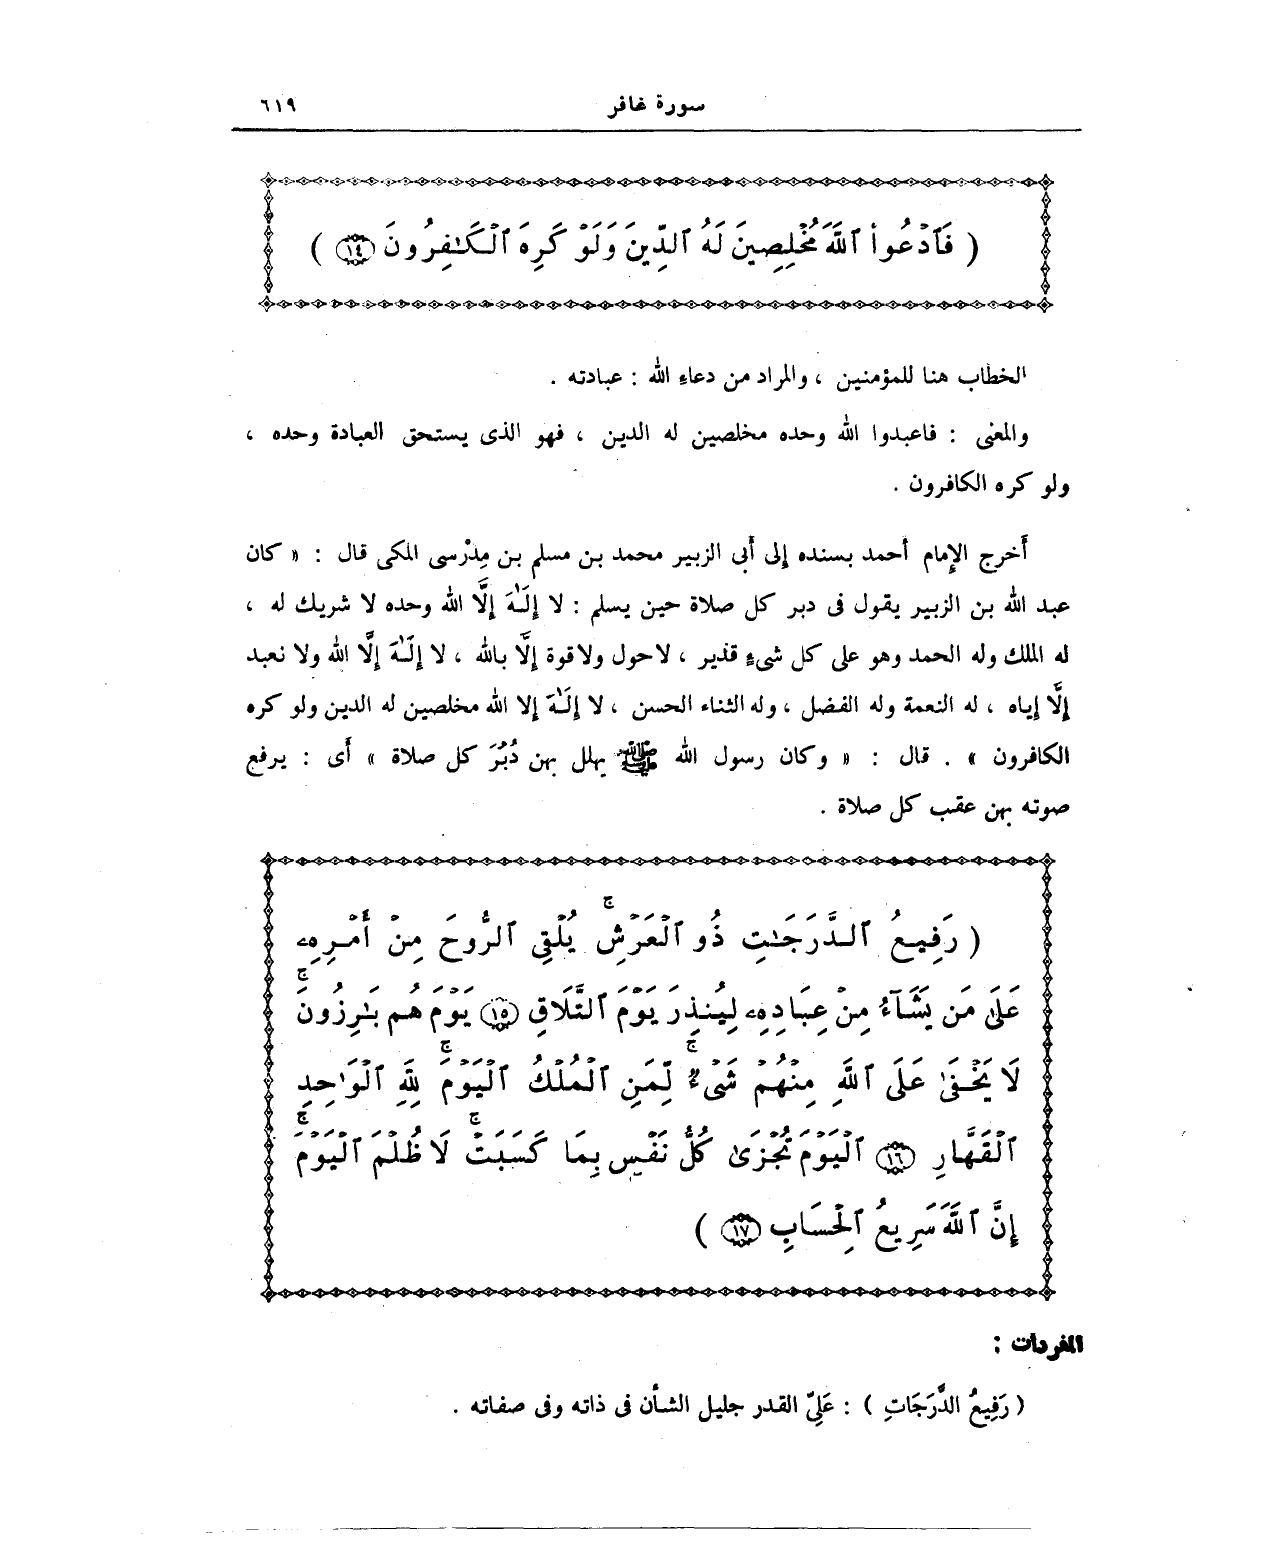 سورة غافر ٦١٩
( فَٱدْعُوا۟ ٱللَّهَ مُخْلِصِينَ لَهُ ٱلدِّينَ وَلَوْ كَرِهَ ٱلْكَـٰفِرُونَ ١٤ )
الخطاب هنا للمؤمنين ، والمراد من دعاء الله : عبادته .
والمعنى : فاعبدوا الله وحده مخلصين له الدين ، فهو الذى يستحق العبادة وحده ،
ولو كره الكافرون .
أخرج الإمام أحمد بسنده إلى أبى الزبير محمد بن مسلم بن مِدْرسى المكى قال : « كان
عبد الله بن الزبير يقول فى دبر كل صلاة حين يسلم : لا إِلَـٰهَ إلَّا الله وحده لا شريك له ،
له الملك وله الحمد وهو على كل شىء قدير ، لا حول ولا قوة إلَّا بالله ، لا إِلَـٰهَ إلَّا الله ولا نعبد
إلَّا إياه ، له النعمة وله الفضل ، وله الثناء الحسن ، لا إِلَـٰهَ إلا الله مخلصين له الدين ولو كره
الكافرون » . قال : « وكان رسول الله ﷺ يهلل بهن دُبُرَ كل صلاة » أى : يرفع
صوته بهن عقب كل صلاة .
( رَفِيعُ ٱلدَّرَجَـٰتِ ذُو ٱلْعَرْشِ ۚ يُلْقِى ٱلرُّوحَ مِنْ أَمْرِهِۦ
عَلَىٰ مَن يَشَآءُ مِنْ عِبَادِهِۦ لِيُنذِرَ يَوْمَ ٱلتَّلَاقِ ١٥ يَوْمَ هُم بَـٰرِزُونَ ۚ
لَا يَخْفَىٰ عَلَى ٱللَّهِ مِنْهُمْ شَىْءٌ ۚ لِّمَنِ ٱلْمُلْكُ ٱلْيَوْمَ ۚ لِلَّهِ ٱلْوَٰحِدِ
ٱلْقَهَّارِ ١٦ ٱلْيَوْمَ تُجْزَىٰ كُلُّ نَفْسٍۭ بِمَا كَسَبَتْ ۚ لَا ظُلْمَ ٱلْيَوْمَ ۚ
إِنَّ ٱللَّهَ سَرِيعُ ٱلْحِسَابِ ١٧ )
المفردات :
( رَفِيعُ الدَّرَجَاتِ ) : عَلِىّ القدر جليل الشأن فى ذاته وفى صفاته .